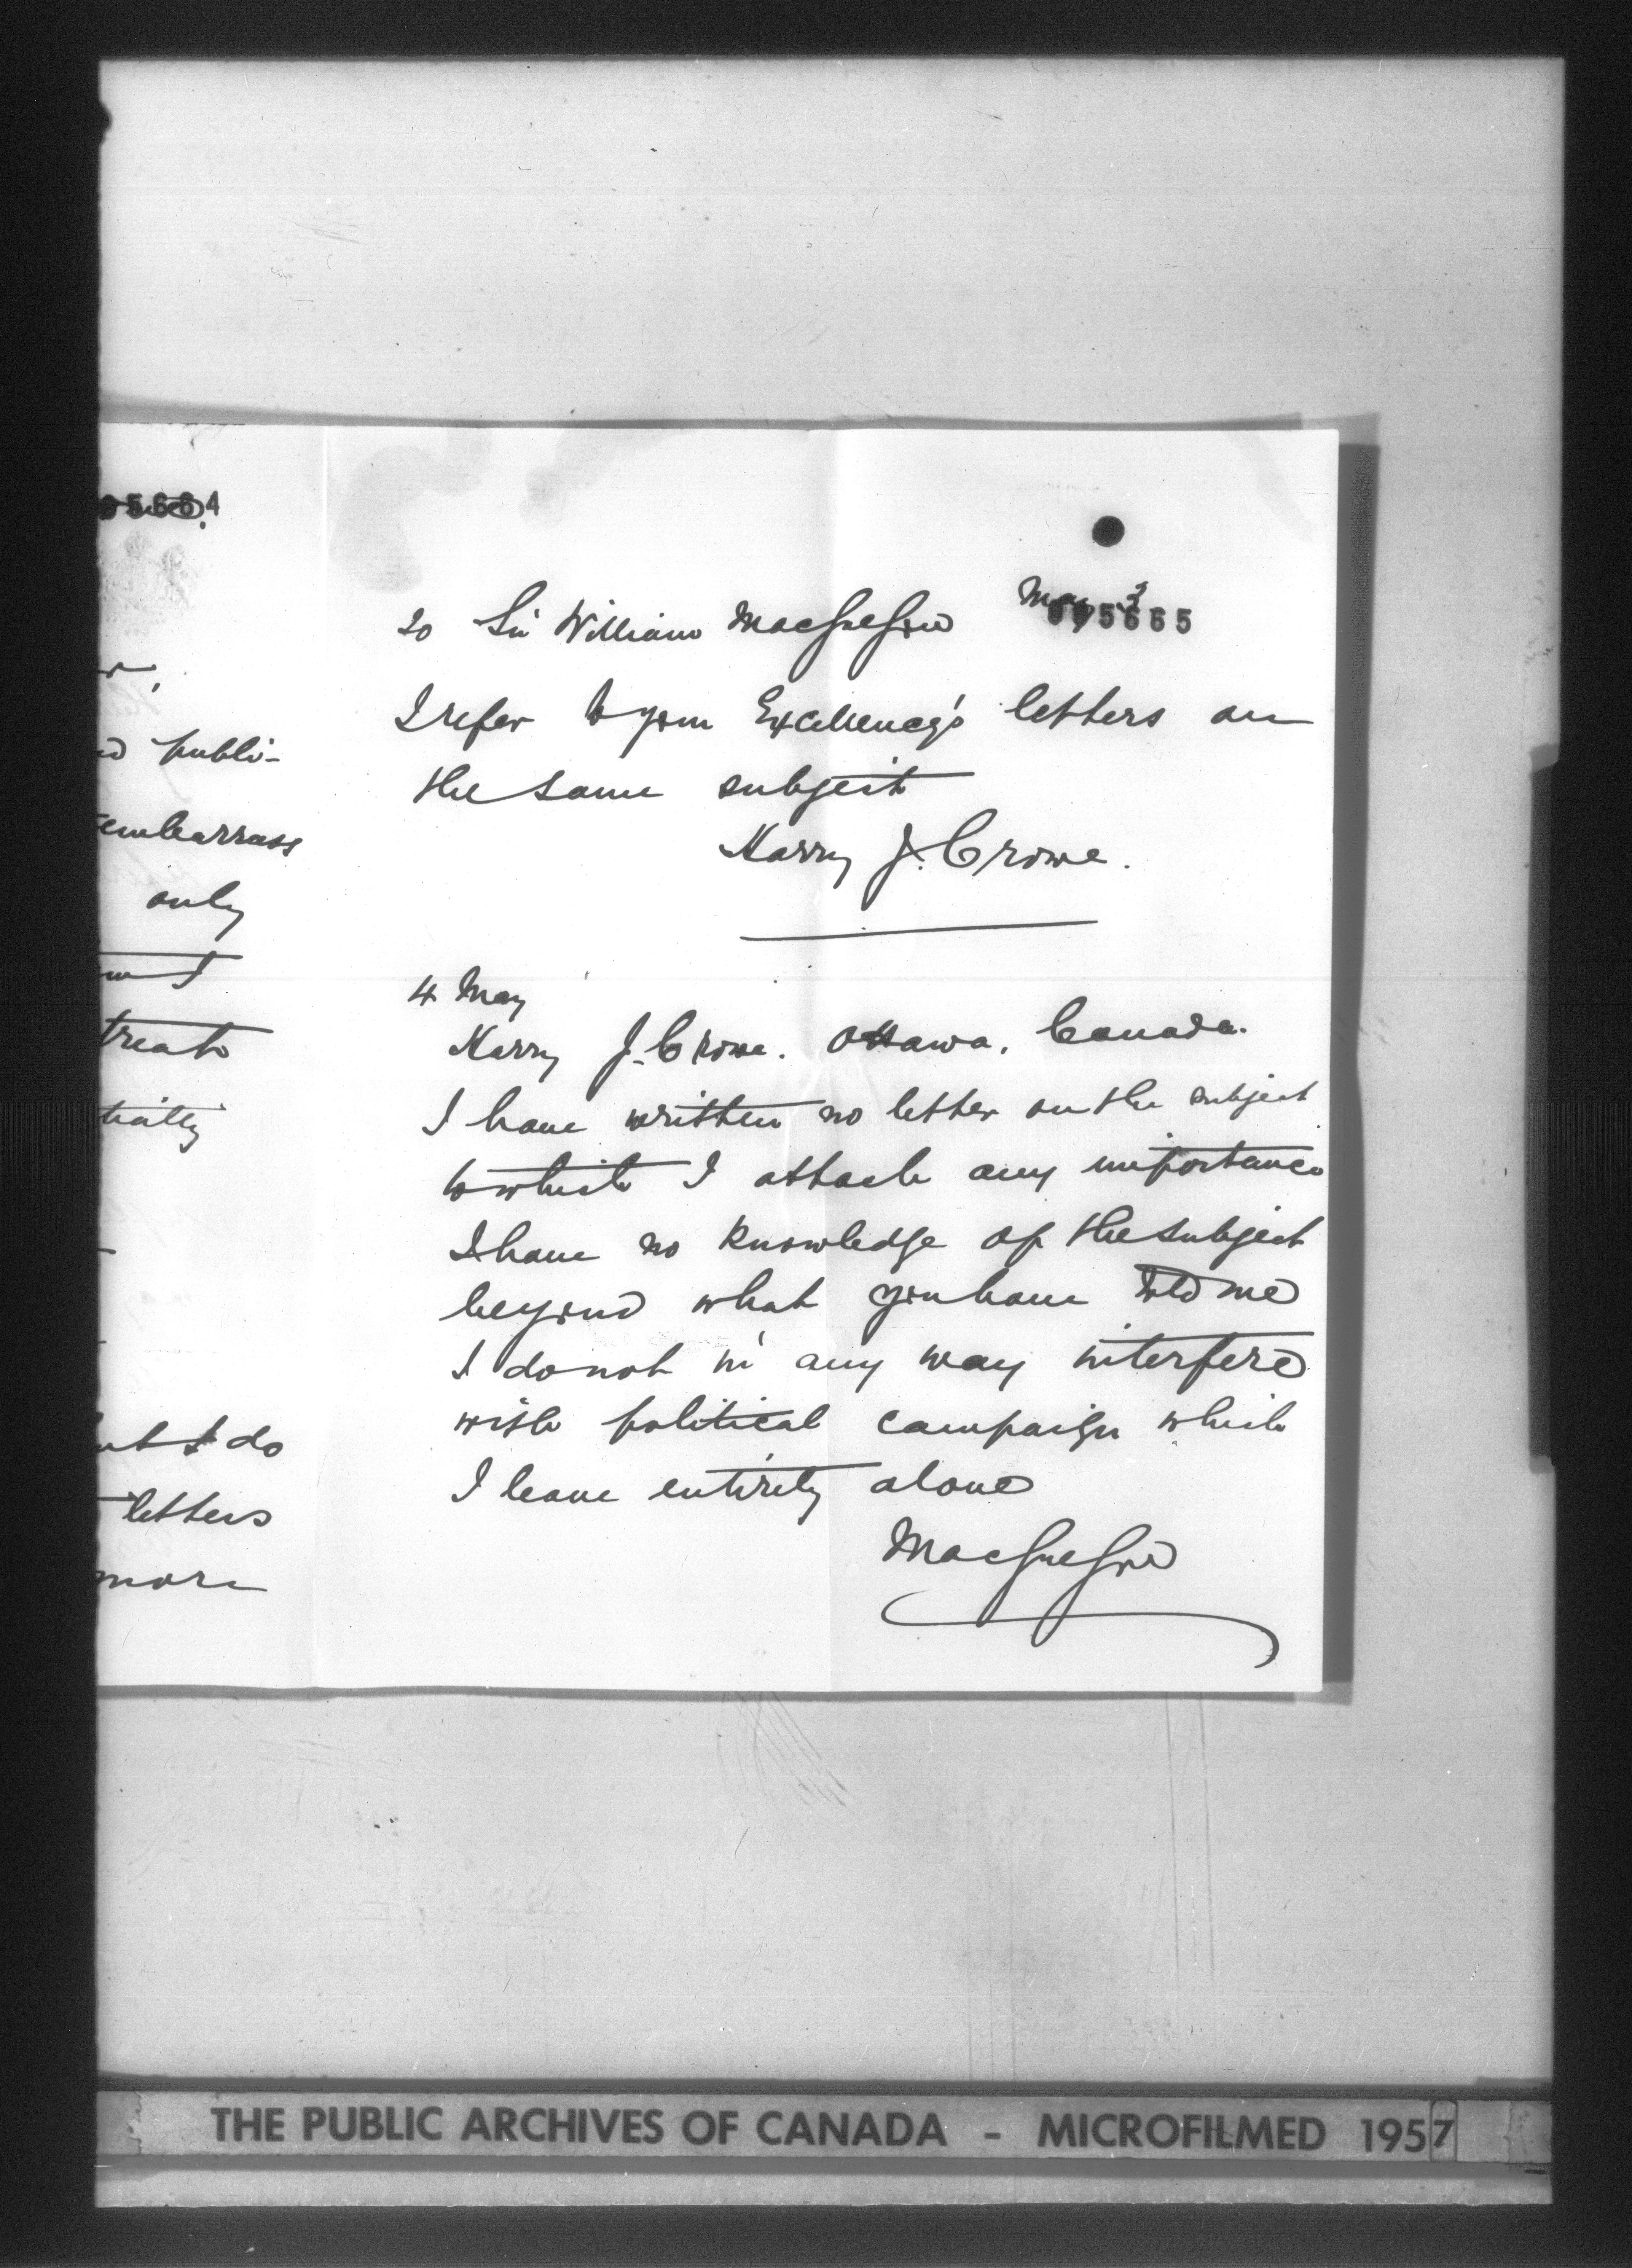 5664
publi-
embarrass
only
treat
I do
letters
more
005665
May 3
To Sir William MacGregor
I refer to your Excellency's letters on
the same subject
Harry J. Crowe.
4 May
Harry J. Crowe. Ottawa, Canada.
I have written no letter on the subject
to which I attach any importance
I have no knowledge of the subject
beyond what you have told me
I do not in any way interfere
with political campaign which
I leave entirely alone
MacGregor
THE PUBLIC ARCHIVES OF CANADA - MICROFILMED 1957